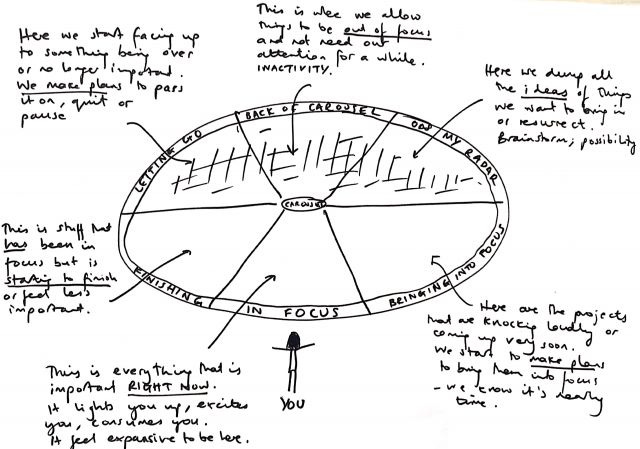 Here we start facing up
to something being over
or no longer important.
We make plans to pass
it on, quit or
pause
This is where we allow
things to be out of focus
and not need our
attention for a while.
INACTIVITY.
Here we dump all
the ideas of things
we want to bring in
or resurrect.
Brainstorm; possibility
LETTING GO
BACK OF CAROUSEL
ON MY RADAR
CAROUSEL
This is stuff that
has been in
focus but is
starting to finish
or feel less
important.
FINISHING
IN FOCUS
BRINGING INTO FOCUS
Here are the projects
that are knocking loudly or
coming up very soon.
We start to make plans
to bring them into focus
- we know it's nearly
time.
This is everything that is
important RIGHT NOW.
It lights you up, excites
you, consumes you.
It feel expansive to be here.
YOU